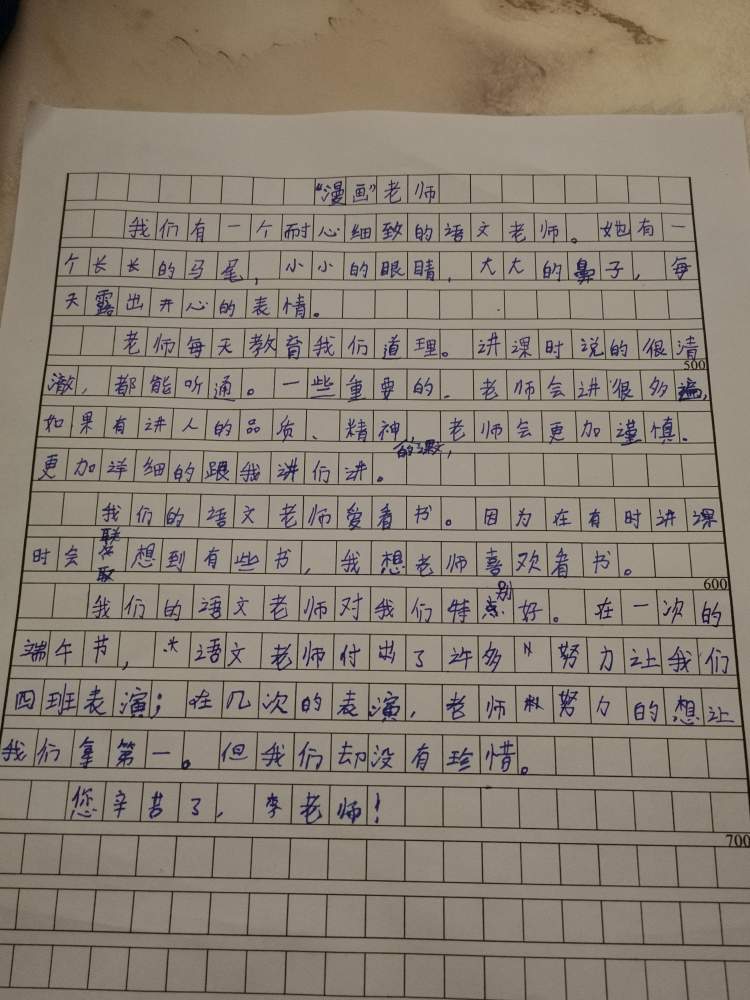 “漫画”老师
我们有一个耐心细致的语文老师。她有一
个长长的马尾，小小的眼睛，大大的鼻子，每
天露出开心的表情。
老师每天教育我们道理。讲课时说的很清
500
澈，都能听通。一些重要的．老师会讲很多遍，
如果有讲人的品质、精神的课文，老师会更加谨慎．
更加详细的跟我讲们讲。
我们的语文老师爱看书。因为在有时讲课
时会联想到有些书，我想老师喜欢看书。
600
我们的语文老师对我们特别好。在一次的
端午节，语文老师付出了许多努力让我们
四班表演；在几次的表演，老师努力的想让
我们拿第一。但我们却没有珍惜。
您辛苦了，李老师！
700